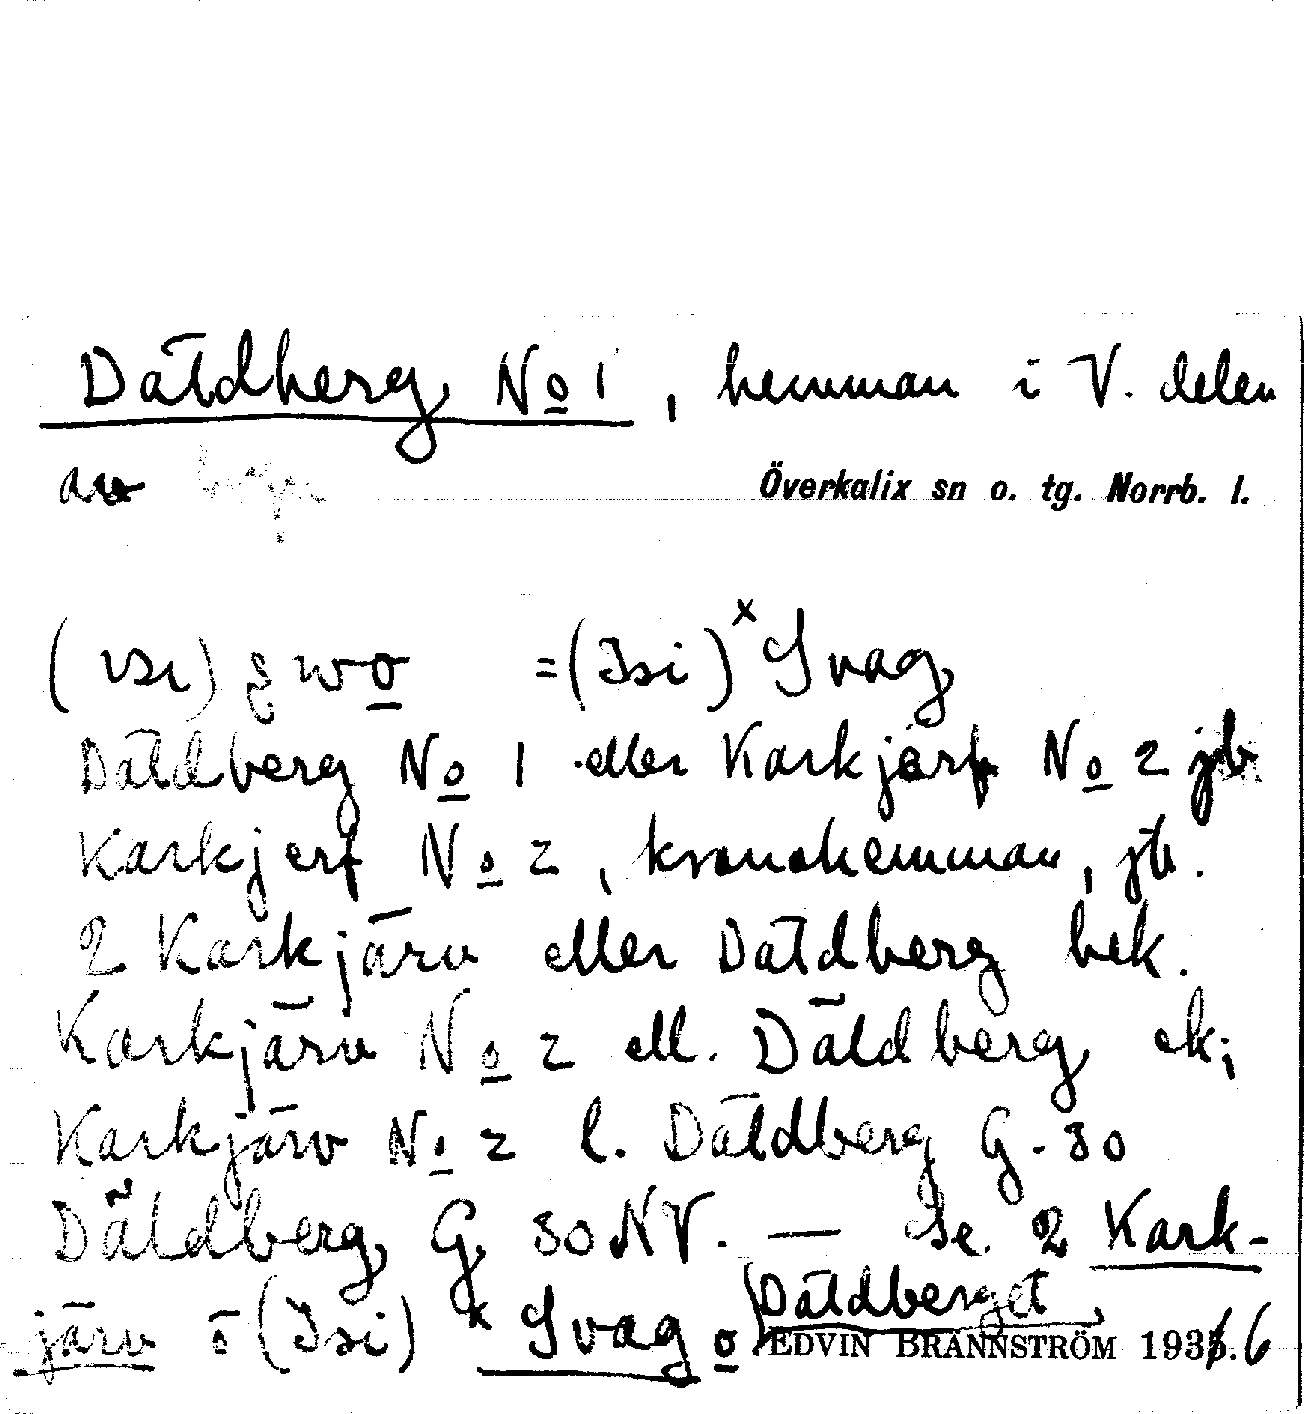 Dätdberg No 1, hemman i V. delen
av
Överkalix sn o. tg. Norrb. l.
= (Isi) x Svag
Däldberg No 1 eller Karkjärf No 2 jb
Karkjerf No 2, kronohemman, jb.
2 Karkjärv eller Dätdberg bek.
Karkjärv No 2 ell. Däldberg ek;
Karkjärv No 2 l. Däldberg G. 30
Däldberg G 30 NV. — Se. 2 Kark-
järv o (Isi) x Svag o Dätdberget
EDVIN BRÄNNSTRÖM 193 6